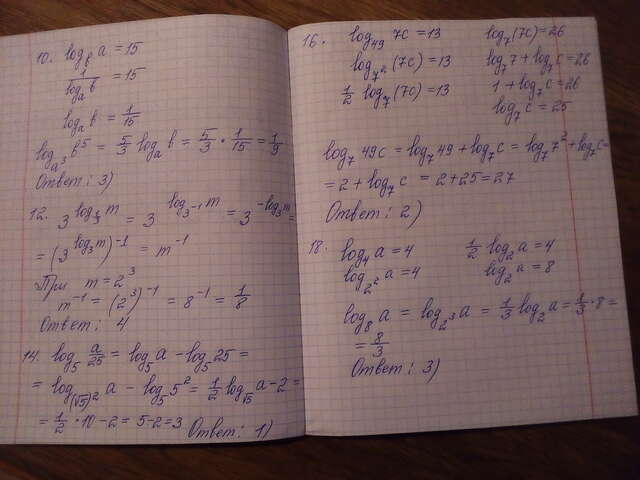 10. log_b a = 15
1/log_a b = 15
log_a b = 1/15
log_{a^3} b^5 = 5/3 log_a b = 5/3 · 1/15 = 1/9
Ответ: 3)
12. 3^{log_{1/3} m} = 3^{log_{3^{-1}} m} = 3^{-log_3 m} =
= (3^{log_3 m})^{-1} = m^{-1}
При m = 2^3
m^{-1} = (2^3)^{-1} = 8^{-1} = 1/8
Ответ: 4
14. log_5 a/25 = log_5 a - log_5 25 =
= log_{(√5)^2} a - log_5 5^2 = 1/2 log_{√5} a - 2 =
= 1/2 · 10 - 2 = 5 - 2 = 3 Ответ: 1)
16. log_49 7c = 13 log_7 (7c) = 26
log_{7^2} (7c) = 13 log_7 7 + log_7 c = 26
1/2 log_7 (7c) = 13 1 + log_7 c = 26
log_7 c = 25
log_7 49c = log_7 49 + log_7 c = log_7 7^2 + log_7 c =
= 2 + log_7 c = 2 + 25 = 27
Ответ: 2)
18. log_4 a = 4 1/2 log_2 a = 4
log_{2^2} a = 4 log_2 a = 8
log_8 a = log_{2^3} a = 1/3 log_2 a = 1/3 · 8 =
= 8/3
Ответ: 3)